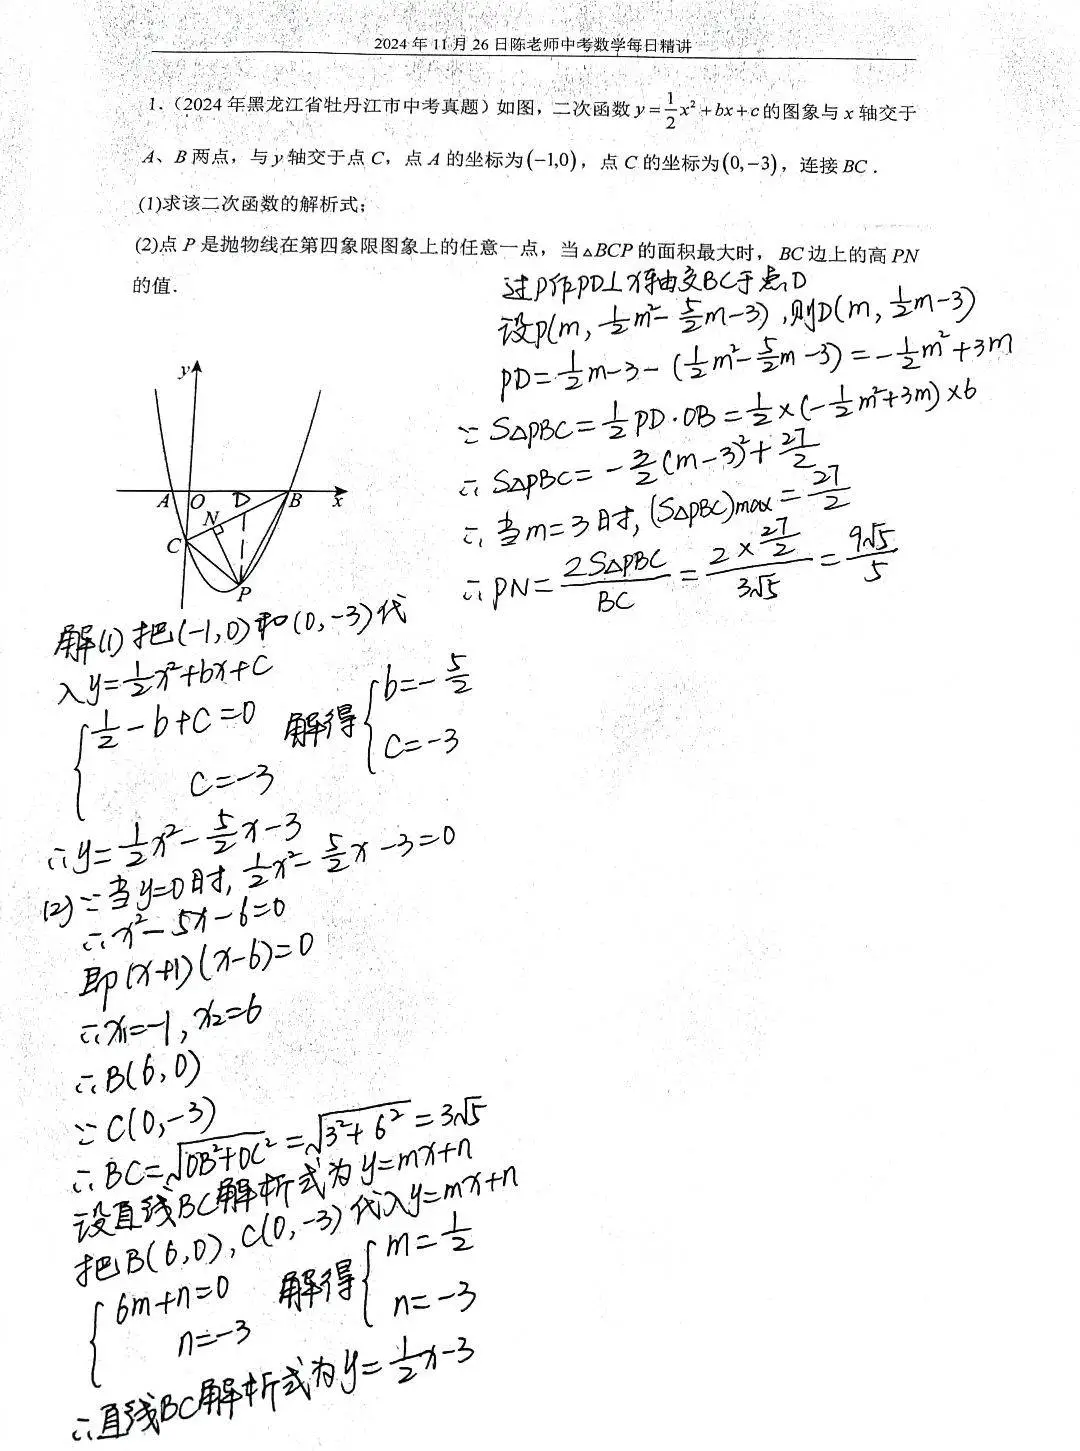 2024年11月26日陈老师中考数学每日精讲
1.（2024年黑龙江省牡丹江市中考真题）如图，二次函数 y=1/2x²+bx+c的图象与 x 轴交于
A、B 两点，与 y 轴交于点 C，点 A 的坐标为(−1,0)，点 C 的坐标为(0,−3)，连接 BC．
(1)求该二次函数的解析式；
(2)点 P 是抛物线在第四象限图象上的任意一点，当△BCP 的面积最大时，BC 边上的高 PN
的值．
过P作PD⊥X轴交BC于点D
设P(m, 1/2m²-5/2m-3),则D(m, 1/2m-3)
PD=1/2m-3-(1/2m²-5/2m-3)=-1/2m²+3m
∵S△PBC=1/2PD·OB=1/2×(-1/2m²+3m)×6
∴S△PBC=-3/2(m-3)²+27/2
∴当m=3时,(S△PBC)max=27/2
∴PN=2S△PBC/BC=2×27/2/3√5=9√5/5
y
A O D B x
N
C
P
解(1)把(-1,0)和(0,-3)代
入y=1/2x²+bx+c
{1/2-b+c=0 解得{b=-5/2
c=-3 c=-3
∴y=1/2x²-5/2x-3
(2)∵当y=0时,1/2x²-5/2x-3=0
∴x²-5x-6=0
即(x+1)(x-6)=0
∴x₁=-1,x₂=6
∴B(6,0)
∵C(0,-3)
∴BC=√OB²+OC²=√3²+6²=3√5
设直线BC解析式为y=mx+n
把B(6,0),C(0,-3)代入y=mx+n
{6m+n=0 解得{m=1/2
n=-3 n=-3
∴直线BC解析式为y=1/2x-3